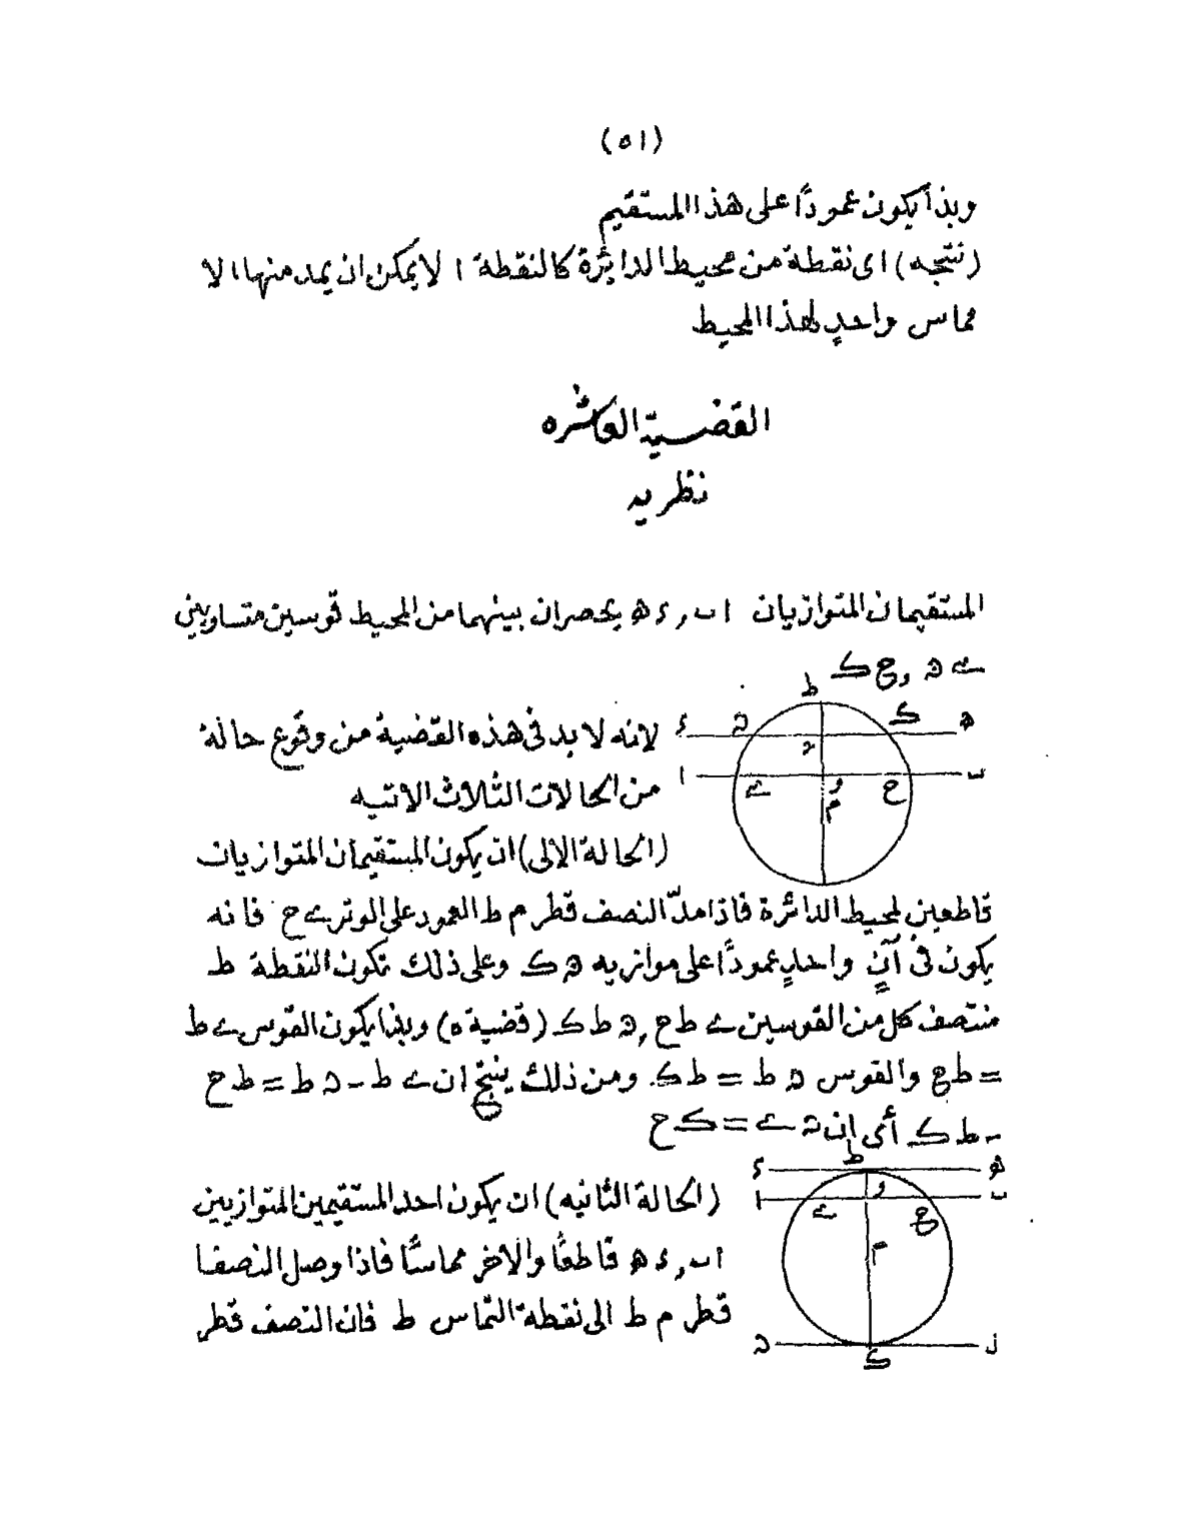 (٥١)
وبذا يكون عمودًا على هذا المستقيم
(نتيجه) اى نقطة من محيط الدايرة كالنقطة ا لا يمكن ان يمد منها الا
مماس واحدٍ لهذا المحيط
القضيّة العاشره
نظريه
المستقيمان المتوازيان اب , ءه يحصران بينهما من المحيط قوسين متساويين
ے ﻫ , ح ك
لانه لا بد فى هذه القضية من وقوع حالة
من الحالات الثلاث الاتيه
(الحالة الاولى) ان يكون المستقيمان المتوازيان
قاطعين لمحيط الدائرة فاذا مدّ النصف قطر م ط العمود على الوتر ے ح فانه
يكون فى آنٍ واحدٍ عمودًا على موازيه ﻫ ك وعلى ذلك تكون النقطة ط
منتصف كل من القوسين ے ط ح , ﻫ ط ك (قضية ٥) وبذا يكون القوس ے ط
= ط ح والقوس ﻫ ط = ط ك. ومن ذلك ينتج ان ے ط - ﻫ ط = ط ح
- ط ك أى ان ﻫ ے = ك ح
(الحالة الثانيه) ان يكون احد المستقيمين المتوازيين
اب , ءه قاطعًا والاخر مماسًّا فاذا وصل النصف
قطر م ط الى نقطة التماس ط فان النصف قطر
ط
ء
ﻫ
ك
ه
ا
ے
و
م
ح
ب
ط
ء
ه
ا
و
ب
ے
ح
م
ل
ك